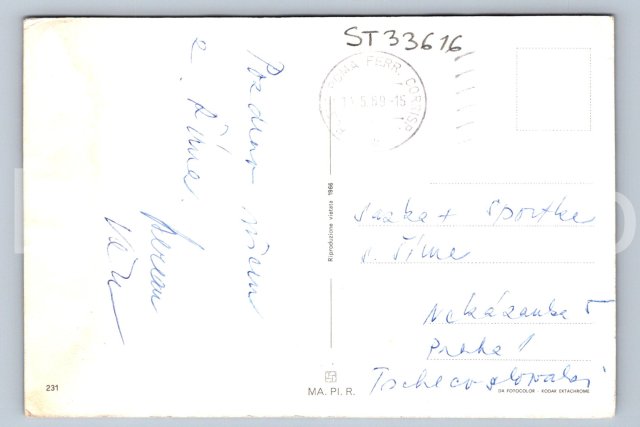 ST33616
ROMA FERR. CORRISP.
11.5.69-15
Pozdrav všem
z Říma.
Sazka + Sportka
p. Šíma
Nekázanka 5
Praha 1
Tschecoslowakei
Riproduzione vietata 1966
231
MA. PI. R.
D4 FOTOCOLOR - KODAK EKTACHROME